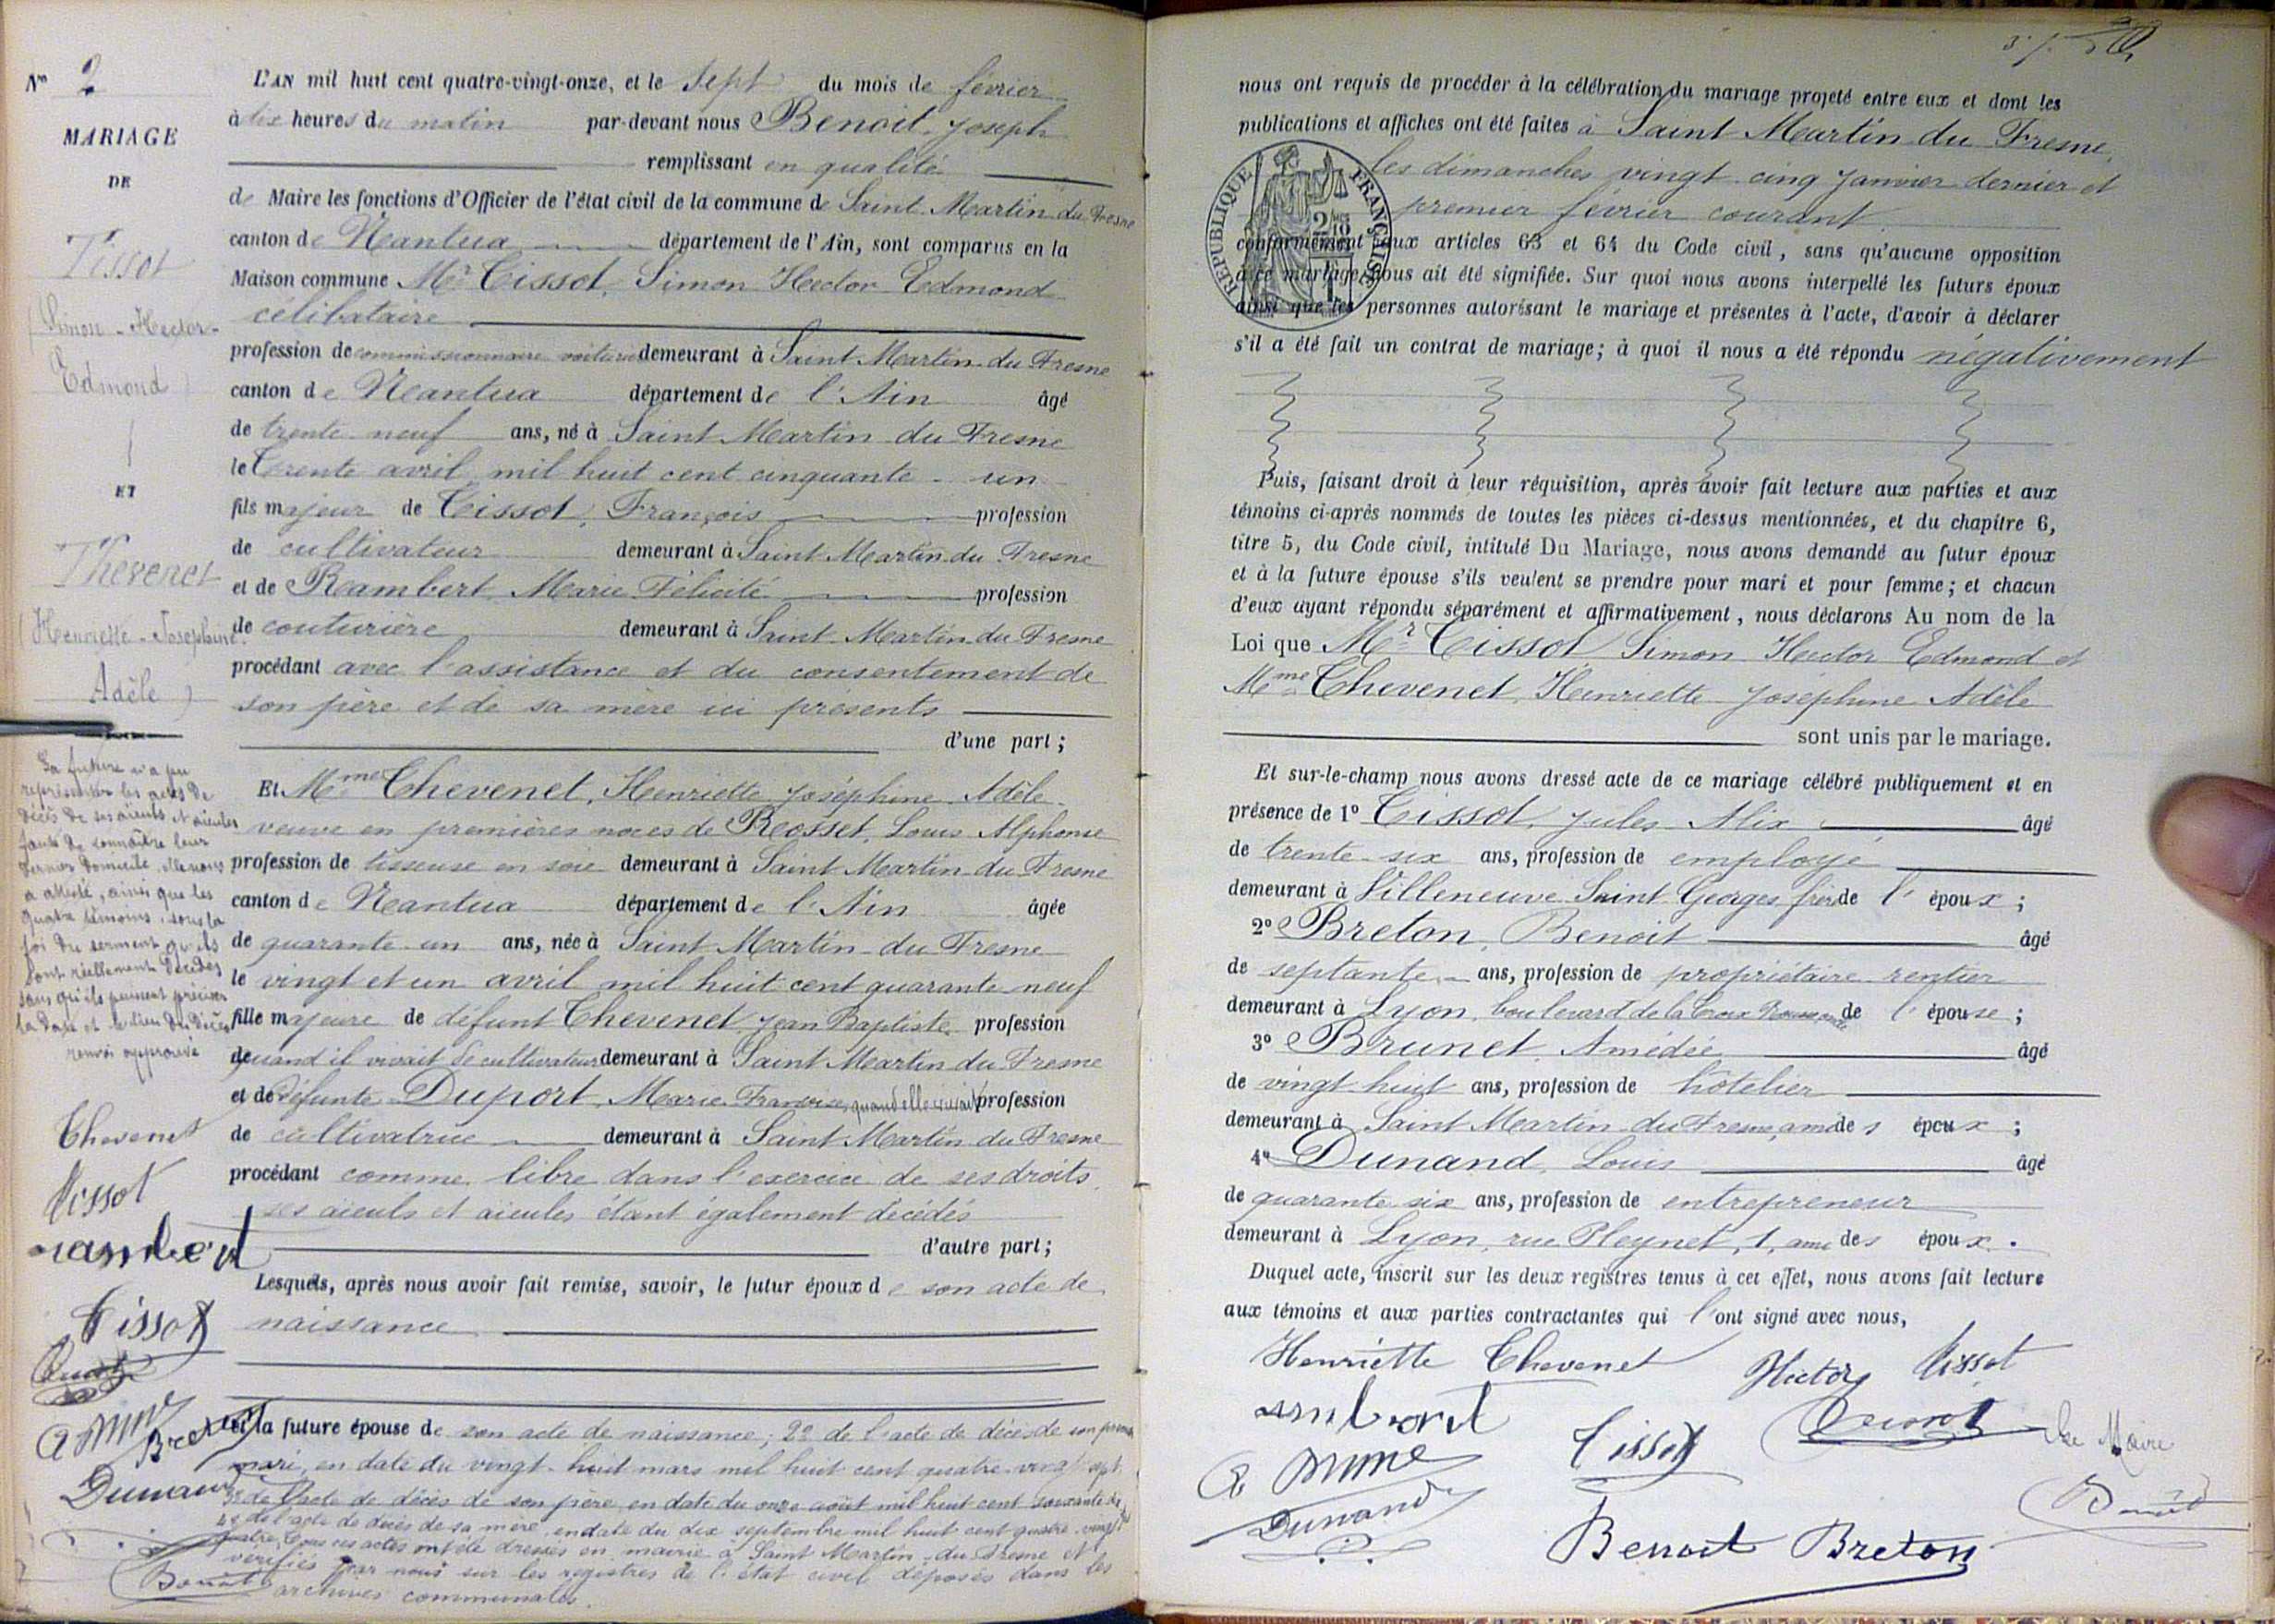 N° 2
MARIAGE
DE
Tissot
(Simon-Hector-
Edmond)
ET
Thévenet
(Henriette-Joséphine-
Adèle)
La future n'a pu
représenter les actes de
décès de ses aïeuls et aïeules
faute de connaître leur
dernier domicile, elle nous
a attesté, ainsi que les
quatre témoins, sous la
foi du serment qu'ils
sont réellement décédés
sans qu'ils puissent préciser
la date et le lieu du décès
renvoi approuvé
Thevenet
Tissot
rambert
Tissot
Breton
Dunand
Benoit
L'AN mil huit cent quatre-vingt-onze, et le sept du mois de février
à dix heures du matin par-devant nous Benoit Joseph
remplissant en qualité
de Maire les fonctions d'Officier de l'état civil de la commune de Saint Martin du Fresne
canton de Nantua département de l'Ain, sont comparus en la
Maison commune Mr Tissot, Simon Hector Edmond
célibataire
profession de commissionnaire voiturier demeurant à Saint Martin du Fresne
canton de Nantua département de l'Ain âgé
de trente neuf ans, né à Saint Martin du Fresne
le trente avril mil huit cent cinquante-un
fils majeur de Tissot, François profession
de cultivateur demeurant à Saint Martin du Fresne
et de Rambert Marie Félicité profession
de couturière demeurant à Saint Martin du Fresne
procédant avec l'assistance et du consentement de
son père et de sa mère ici présents
d'une part;
Et Mme Thevenet, Henriette Joséphine Adèle
veuve en premières noces de Rosset, Louis Alphonse
profession de tisseuse en soie demeurant à Saint Martin du Fresne
canton de Nantua département de l'Ain âgée
de quarante un ans, née à Saint Martin du Fresne
le vingt et un avril mil huit cent quarante neuf
fille majeure de défunt Thevenet Jean Baptiste profession
de quand il vivait de cultivateur demeurant à Saint Martin du Fresne
et de défunte Duport, Marie Françoise, quand elle vivait profession
de cultivatrice demeurant à Saint Martin du Fresne
procédant comme libre dans l'exercice de ses droits
ses aïeuls et aïeules étant également décédés
d'autre part;
Lesquels, après nous avoir fait remise, savoir, le futur époux de son acte de
naissance
et la future épouse de son acte de naissance; 2° de l'acte de décès de son premier
mari, en date du vingt-huit mars mil huit cent quatre-vingt sept
3° de l'acte de décès de son père en date du onze août mil huit cent soixante
4° de l'acte de décès de sa mère, en date du dix septembre mil huit cent quatre-vingt
quatre, tous ces actes ont été dressés en mairie à Saint Martin-du-Fresne et
vérifiés par nous sur les registres de l'état civil déposés dans les
archives communales.
nous ont requis de procéder à la célébration du mariage projeté entre eux et dont les
publications et affiches ont été faites à Saint Martin du Fresne,
les dimanches vingt cinq janvier dernier et
premier février courant
RÉPUBLIQUE FRANÇAISE
conformément aux articles 63 et 64 du Code civil, sans qu'aucune opposition
à ce mariage nous ait été signifiée. Sur quoi nous avons interpellé les futurs époux
ainsi que les personnes autorisant le mariage et présentes à l'acte, d'avoir à déclarer
s'il a été fait un contrat de mariage; à quoi il nous a été répondu négativement
Puis, faisant droit à leur réquisition, après avoir fait lecture aux parties et aux
témoins ci-après nommés de toutes les pièces ci-dessus mentionnées, et du chapitre 6,
titre 5, du Code civil, intitulé Du Mariage, nous avons demandé au futur époux
et à la future épouse s'ils veulent se prendre pour mari et pour femme; et chacun
d'eux ayant répondu séparément et affirmativement, nous déclarons Au nom de la
Loi que Mr Tissot Simon Hector Edmond et
Mme Thevenet, Henriette Joséphine Adèle
sont unis par le mariage.
Et sur-le-champ nous avons dressé acte de ce mariage célébré publiquement et en
présence de 1° Tissot, Jules Alix âgé
de trente-six ans, profession de employé
demeurant à Villeneuve Saint Georges frère de l'époux;
2° Breton, Benoit âgé
de septante ans, profession de propriétaire rentier
demeurant à Lyon, boulevard de la Croix Rousse, de l'épouse;
3° Brunet Amédée âgé
de vingt huit ans, profession de hôtelier
demeurant à Saint Martin du Fresne, ami des époux;
4° Dunand, Louis âgé
de quarante six ans, profession de entrepreneur
demeurant à Lyon, rue Pleynet, 1, ami des époux.
Duquel acte, inscrit sur les deux registres tenus à cet effet, nous avons fait lecture
aux témoins et aux parties contractantes qui l'ont signé avec nous,
Henriette Thevenet Hector Tissot
Tissot
Le Maire
Dunand
Benoit
Benoit Breton